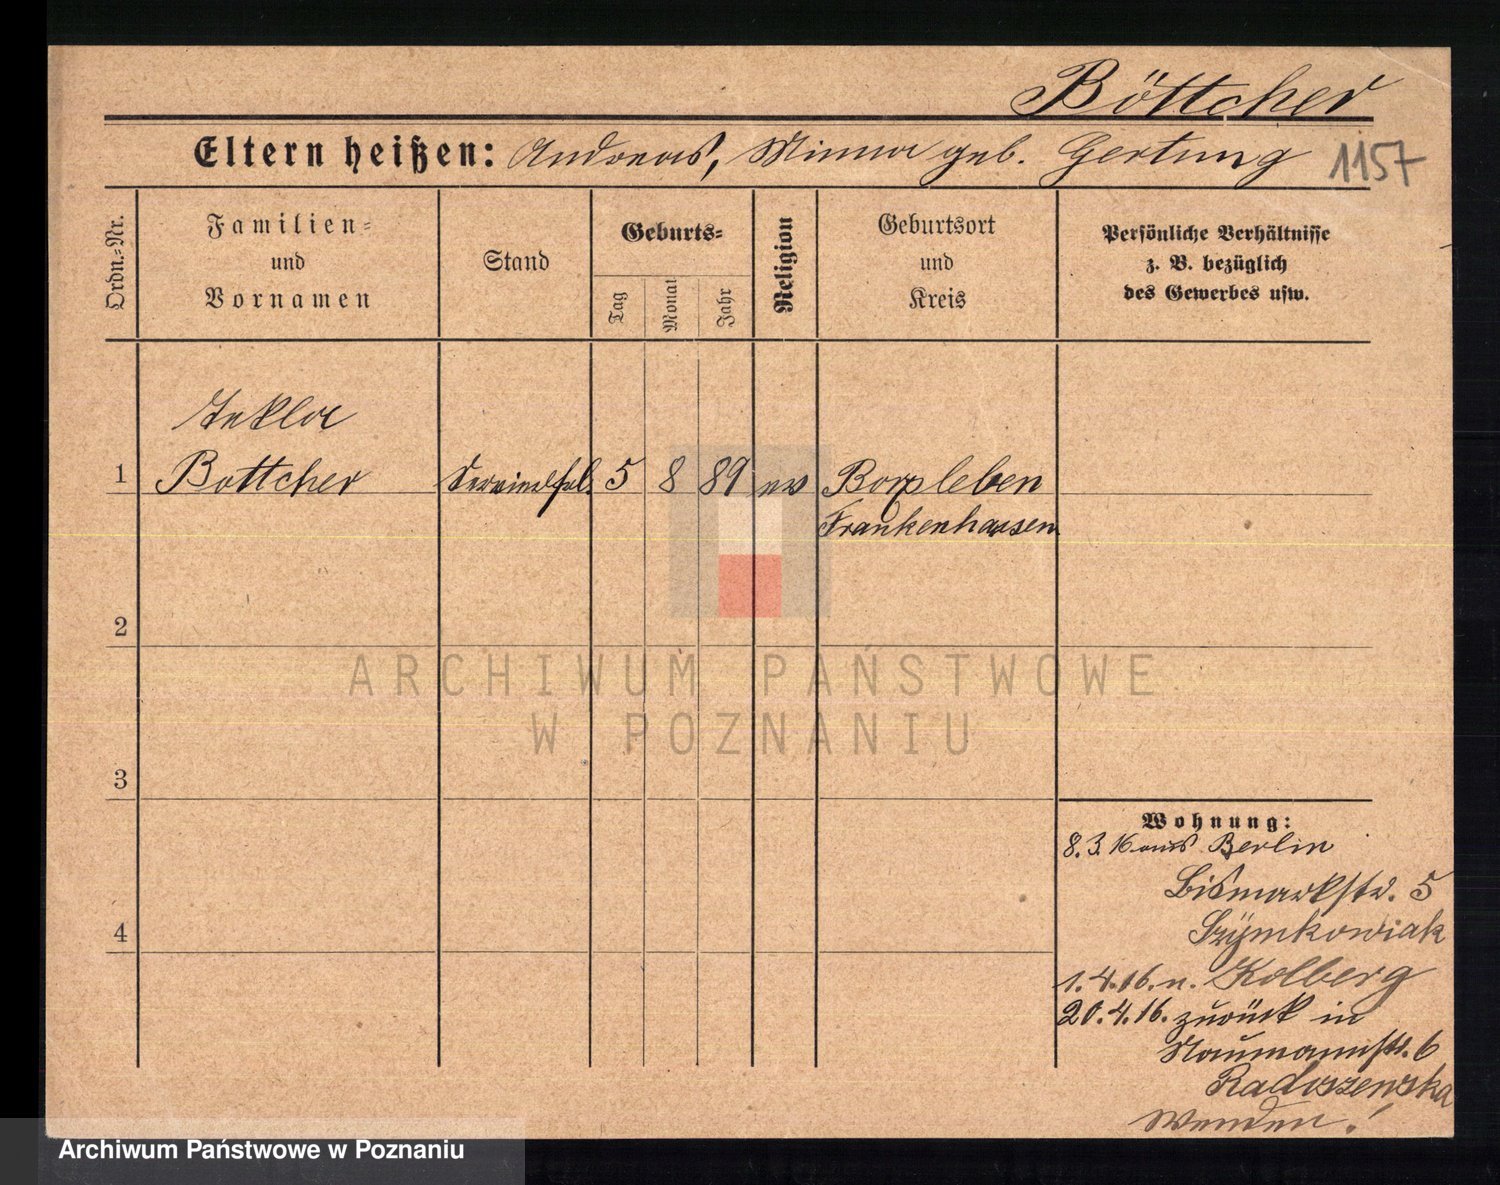 Böttcher
Eltern heißen: Andreas, Minna geb. Gertung
1157
Ordn.=Nr.
Familien=
und
Vornamen
Stand
Geburts=
Tag
Monat
Jahr
Religion
Geburtsort
und
Kreis
Persönliche Verhältnisse
z. B. bezüglich
des Gewerbes usw.
Tekla
1 Bottcher 5 8 89 ev Borxleben
Frankenhausen
2
ARCHIWUM PAŃSTWOWE
W POZNANIU
3
Wohnung:
8.3.16 aus Berlin
Bismarkstr. 5
Szymkowiak
4
1.4.16. n. Kolberg
20.4.16. zurück in
Naumannstr. 6
Radoszewska
Wenden!
Archiwum Państwowe w Poznaniu